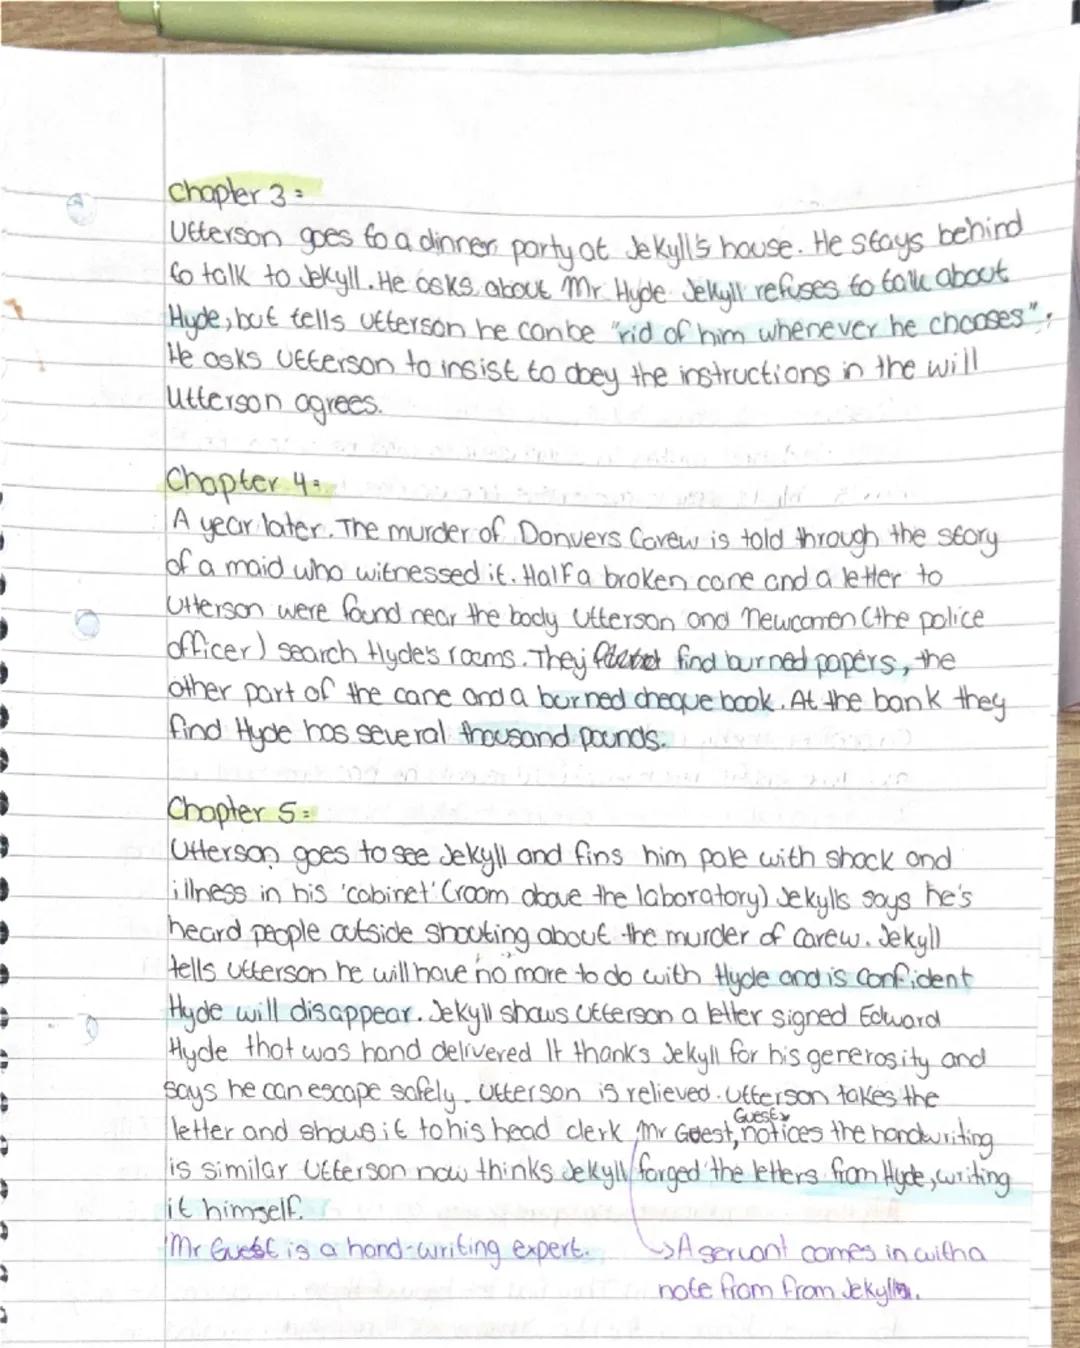 Chapter 3:
Utterson goes to a dinner party at Jekyll's house. He stays behind
to talk to Jekyll. He asks about Mr Hyde Jekyll refuses to talk about
Hyde, but tells Utterson he can be "rid of him whenever he chooses".
He asks Utterson to insist to obey the instructions in the will
Utterson agrees.
Chapter 4:
A year later. The murder of Danvers Carew is told through the story
of a maid who witnessed it. Half a broken cane and a letter to
Utterson were found near the body Utterson and Newcomen (the police
officer) search Hyde's rooms. They find burned papers, the
other part of the cane and a burned cheque book. At the bank they
find Hyde has several thousand pounds.
Chapter 5:
Utterson goes to see Jekyll and fins him pale with shock and
illness in his 'cabinet' (room above the laboratory) Jekylls says he's
heard people outside shouting about the murder of Carew. Jekyll
tells Utterson he will have no more to do with Hyde and is confident
Hyde will disappear. Jekyll shows Utterson a letter signed Edward
Hyde that was hand delivered It thanks Jekyll for his generosity and
says he can escape safely. Utterson is relieved. Utterson takes the
Guest
letter and shows it to his head clerk Mr Guest, notices the handwriting
is similar Utterson now thinks Jekyll forged the letters from Hyde, writing
it himself.
Mr Guest is a hand-writing expert. →A servant comes in with a
note from from Jekyll.